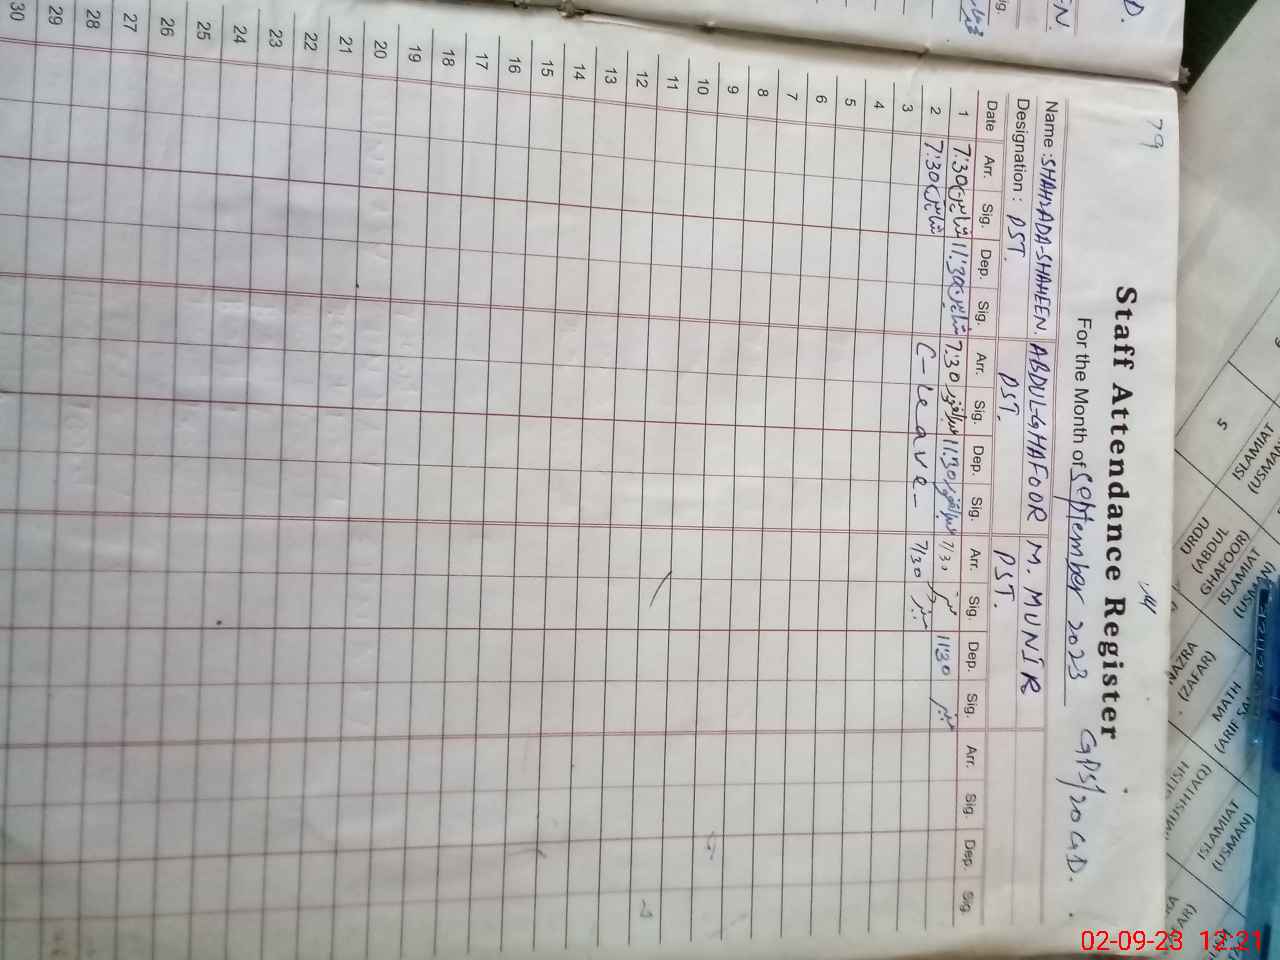 79
Staff Attendance Register
For the Month of September 2023 GPS/20 GD.
Name : SHAHZADA-SHAHEEN. ABDUL-GHAFOOR M. MUNIR
Designation : PST. PST. PST.
Date Arr. Sig. Dep. Sig. Arr. Sig. Dep. Sig. Arr. Sig. Dep. Sig. Arr. Sig. Dep. Sig.
1 7:30 شاہین 11:30 شاہین 7:30 عبدالغفور 11:30 عبدالغفور 7/30 منیر 11:30 منیر
2 7:30 شاہین C-Leave- 7/30 منیر
3
4
5
6
7
8
9
10
11
12
13
14
15
16
17
18
19
20
21
22
23
24
25
26
27
28
29
30
D.
EN.
5
ISLAMIAT
(USMAN
URDU
(ABDUL
GHAFOOR)
ISLAMIAT
(USMAN)
NAZRA
(ZAFAR)
MATH
(ARIF SA
LISH
MUSHTAQ)
ISLAMIAT
(USMAN)
02-09-23 12:21